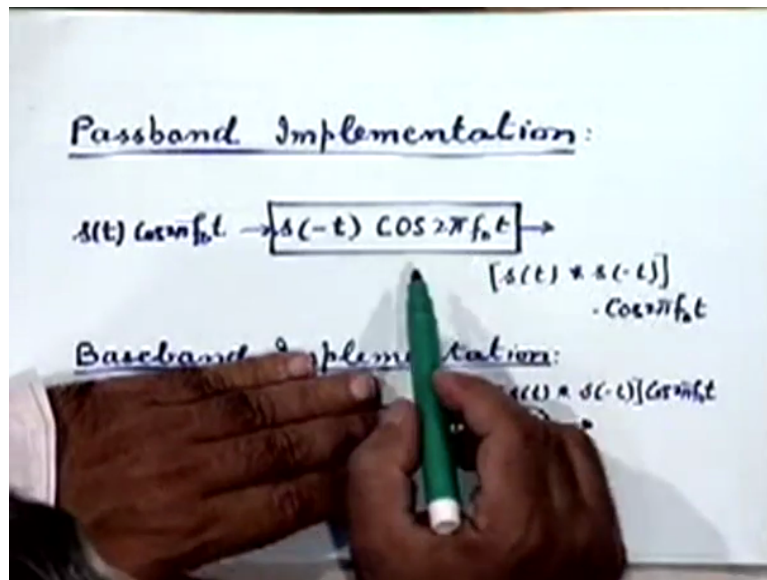 Passband Implementation:
s(t) cos2πf₀t → s(-t) COS 2πf₀t →
[s(t) * s(-t)]
. Cos2πf₀t
Baseband Implementation:
s(t) * s(-t)]Cos2πf₀t